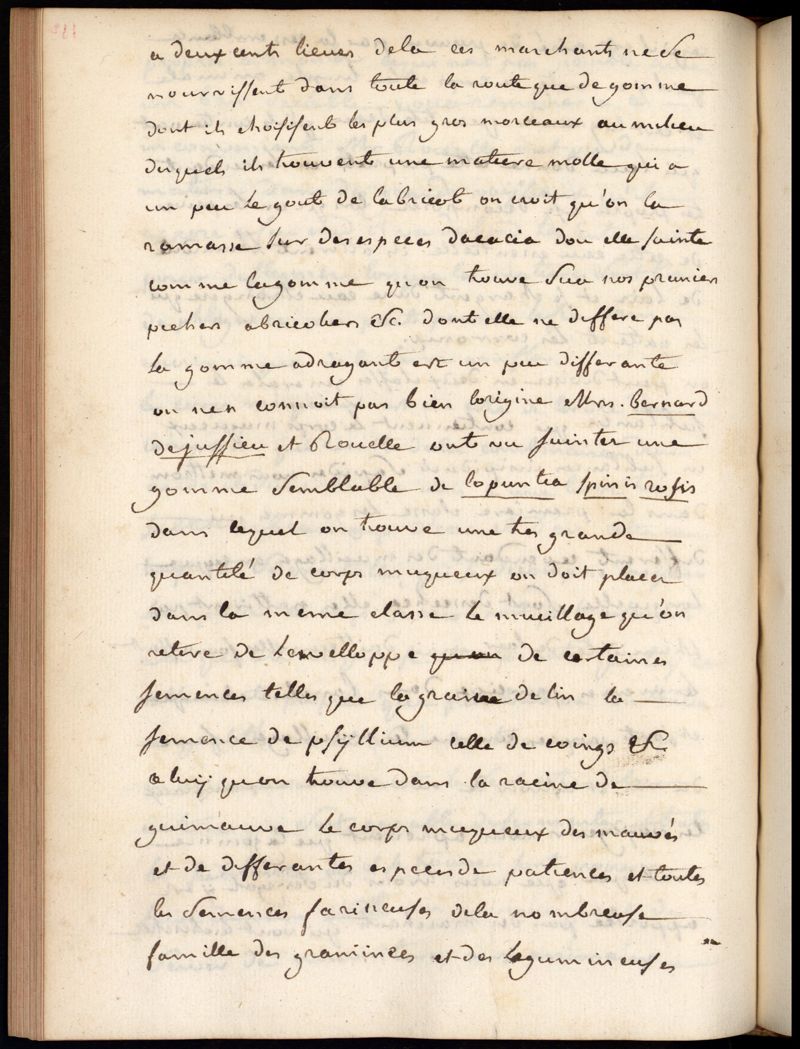 a deux cents lieues dela ces marchants ne se
nourrissent dans toute la route que de gomme
dont ils choisissent les plus gros morceaux au milieu
desquels ils trouvent une matiere molle qui a
un peu le gout de labricot on croit qu'on la
ramasse sur des especes dacacia dou elle suinte
comme lagomme qu'on trouve sur nos pruniers
pechers abricotiers &c. dont elle ne differe pas
la gomme adragant est un peu differante
on nen connoit pas bien lorigine Mrs. bernard
dejussieu et Rouelle ont vu suinter une
gomme semblable de lopuntia spinis rosis
dans lequel on trouve une tres grande
quantité de corps muqueux on doit placer
dans la meme classe le mucillage qu'on
retire de lenvelloppe de certaines
semences telles que la graine de lin la
semence de psyllium celle de coings &c.
celuy qu'on trouve dans la racine de
guimauve le corps muqueux des mauves
et de differantes especes de patiences et toutes
les semences farineuses dela nombreuse
famille des graminees et des legumineuses